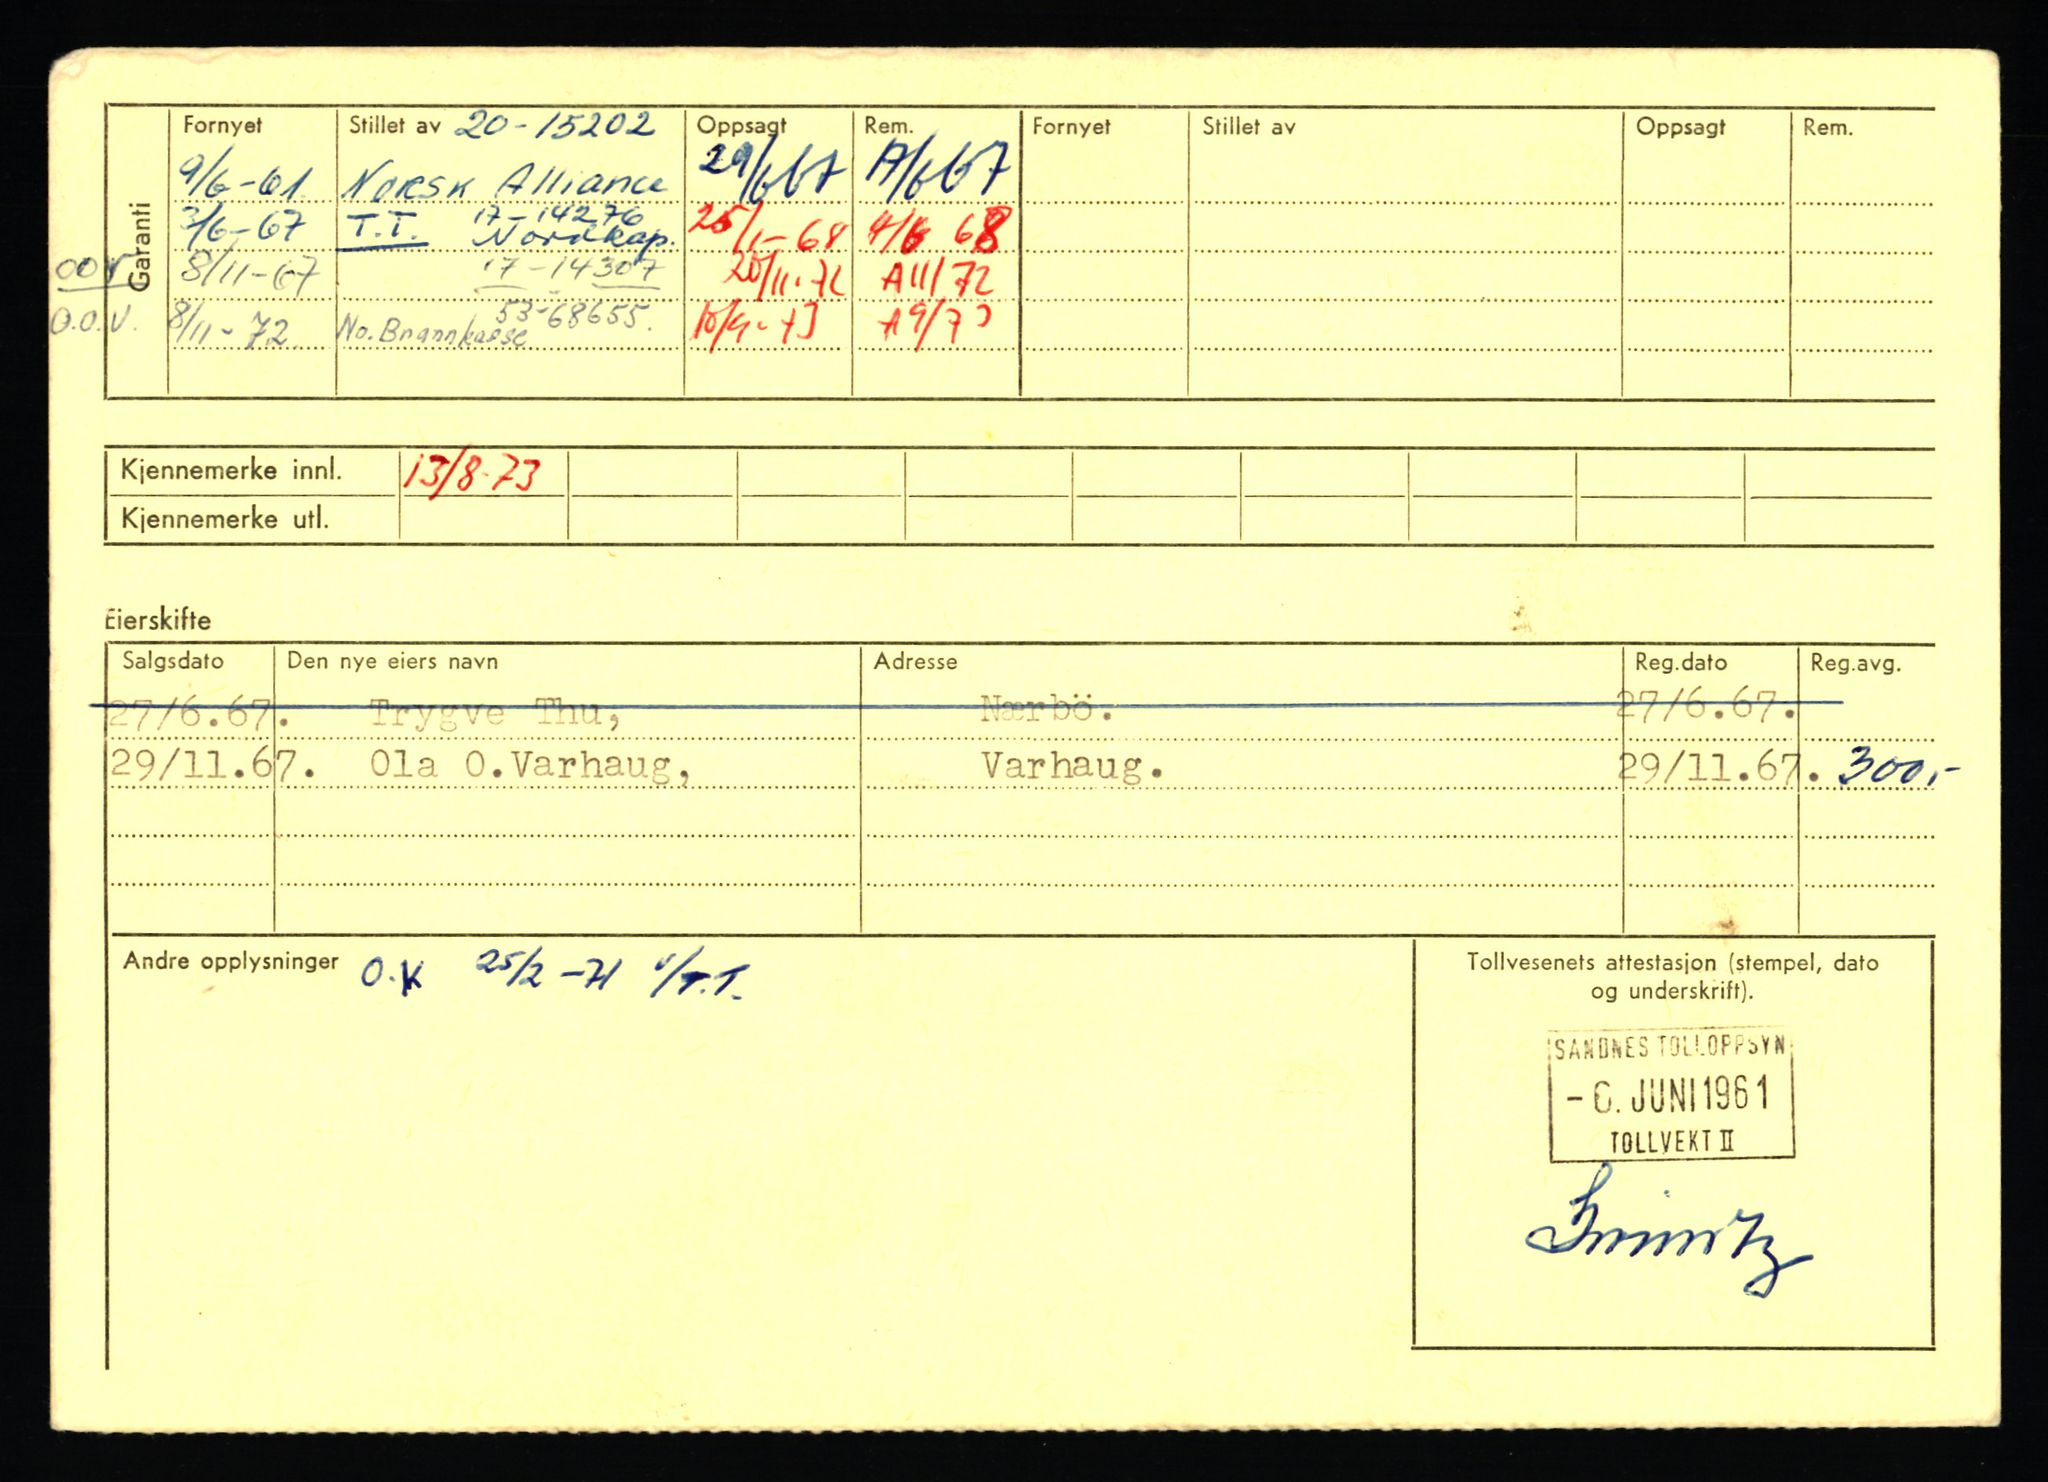 Garanti
Fornyet Stillet av 20-15202 Oppsagt Rem. Fornyet Stillet av Oppsagt Rem.
9/6-61. Norsk Alliance 29/6 67 A/6 67
17-14276
3/6-67 T.T. Nordkap. 25/1-68 4/6 68
OOV 8/11-67 17-14307 20/11.72 A 11/72
53-68655.
O.O.V. 8/11-72. No. Brannkasse 10/9-73 A 9/73
Kjennemerke innl. 13/8-73
Kjennemerke utl.
Eierskifte
Salgsdato Den nye eiers navn Adresse Reg.dato Reg.avg.
27/6.67. Trygve Thu, Nærbö. 27/6.67.
29/11.67. Ola O.Varhaug, Varhaug. 29/11.67. 300,-
Andre opplysninger O.K 25/2-71 v/T.T.
Tollvesenets attestasjon (stempel, dato
og underskrift).
SANDNES TOLLOPPSYN
- 6. JUNI 1961
TOLLVEKT II